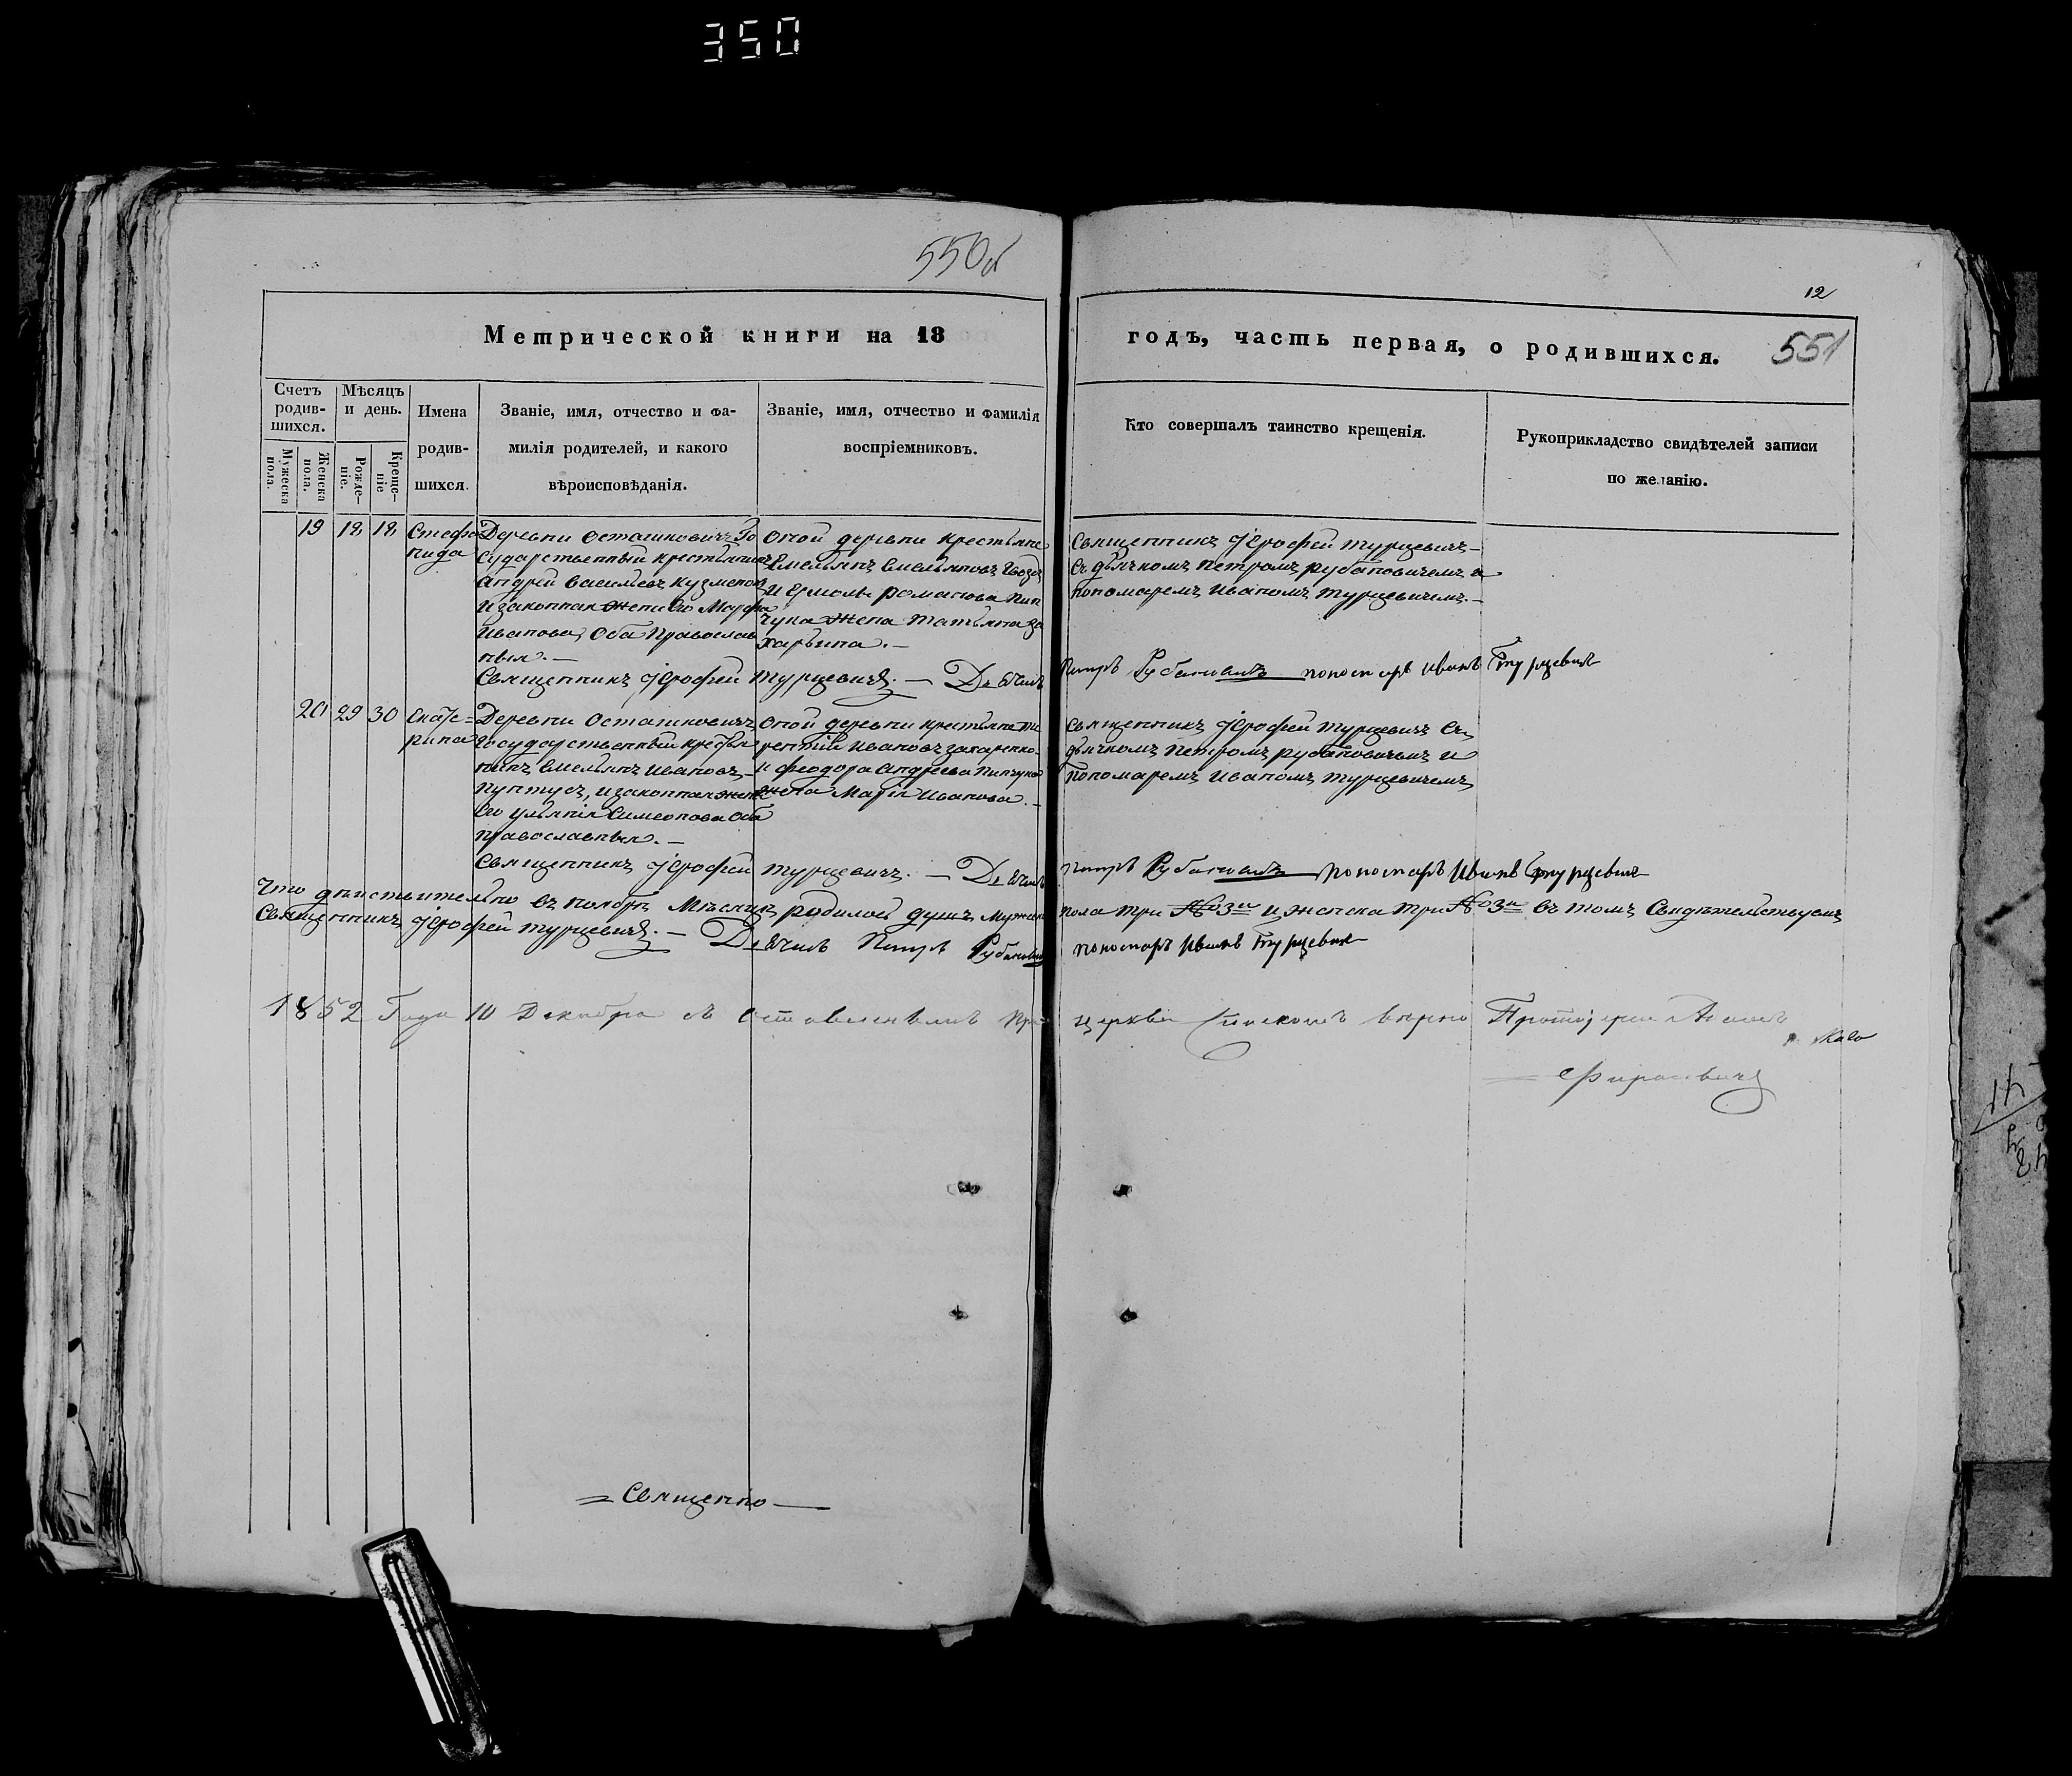 350
550об
12
Метрической книги на 18
годъ, часть первая, о родившихся.
551
Счетъ родив-шихся.
Мѣсяцъ и день.
Имена родив-шихся.
Званіе, имя, отчество и фа-
милія родителей, и какого
вѣроисповѣданія.
Званіе, имя, отчество и фамилія
воспріемниковъ.
Кто совершалъ таинство крещенія.
Рукоприкладство свидѣтелей записи
по желанію.
Мужеска пола.
Женска пола.
Рожде-ніе.
Креще-ніе
19 18 18
Стефа
нида
Деревни Осташковичъ Го
сударственный крестьянинъ
Андрей Васильевъ Кузменокъ
и законная жена его Марфа
Иванова, Оба Православ
ныя. —
Оной деревни крестьяне
Емельянъ Емельяновъ
и Ермолы Романова Пин
чука жена Татьяна За
харьина. —
Священникъ Іерофей Турцевичъ —
Съ дьячкомъ Петромъ Рубановичемъ и
пономаремъ Иваномъ Турцевичемъ. —
Священникъ Іерофей Турцевичъ. — Дьячекъ
Петръ Рубановичъ пономарь Иванъ Турцевичъ
20 29 30
Екате=
рина
Деревни Осташковичъ
Государственный крестья
нинъ Емельянъ Ивановъ
Пунтусъ, и законная жена
его Ульянія Симеонова Оба
православныя. —
Оной деревни крестьяне Те
рентій Ивановъ Захаренко
и Феодора Андреева Пинчука
жена Марія Иванова. —
Священникъ Іерофей Турцевичъ Съ
дьячкомъ Петромъ Рубановичемъ и
пономаремъ Иваномъ Турцевичемъ
Священникъ Іерофей Турцевичъ. — Дьячекъ
Петръ Рубановичъ пономарь Иванъ Турцевичъ
Что дѣйствительно въ ноябрѣ Мѣсяцѣ родилось душъ Мужеска
пола три № 3й и женска три № 3й въ томъ Свидѣтельствуемъ
Священникъ Іерофей Турцевичъ. — Дьячекъ Петръ Рубановичъ
пономарь Иванъ Турцевичъ
1852 Года 10 Декабря съ
церкви вѣрно Протоіерей
= Священно —